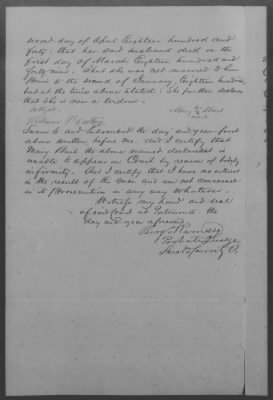 second day of April Eighteen hundred and
forty; that her said husband died on the
first day of March Eighteen hundred and
forty nine. That she was not married to him
Prior to the second of January, Eighteen hundred,
but at the time above stated. She further declares
that she is now a Widow.
Attest. Mary her x mark
Sworn to and Subscribed the day and year first
above written before me. And I certify that
Mary the above named declarant is
unable to appear in Court by reason of bodily
infirmity. And I certify that I have no interest
in the result of the case and am not concerned
in its Prosecution in any way Whatever.
Witness my hand and seal
of said Court at Portsmouth the
day and year aforesaid
Probate Judge
Scioto County O.